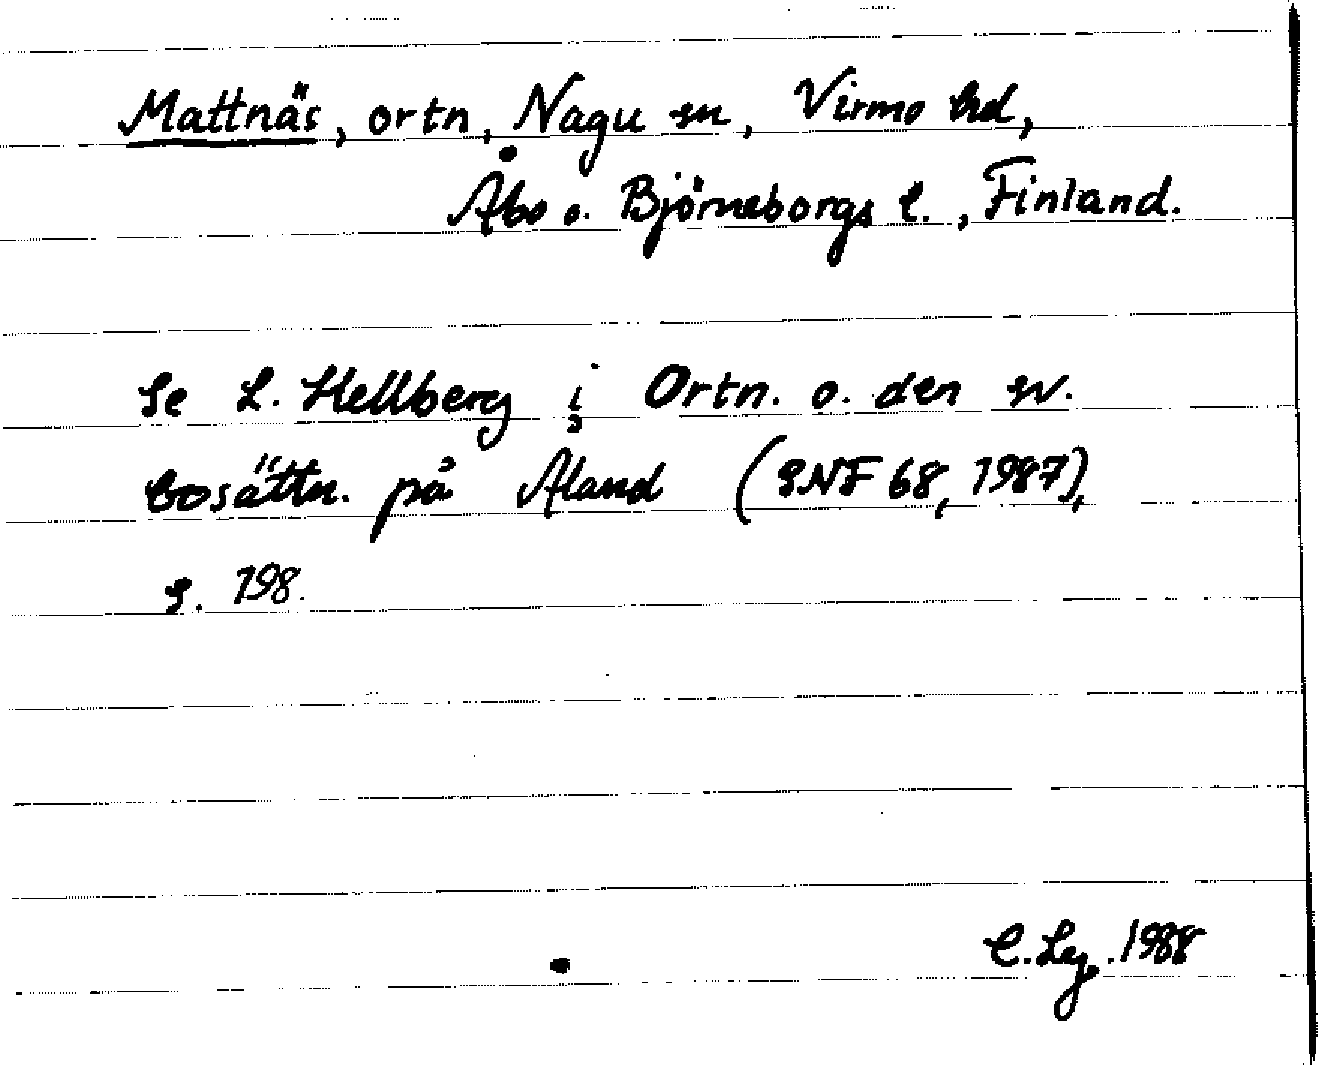 Mattnäs, ortn, Nagu sn, Virmo hd,
Åbo o. Björneborgs l., Finland.
Se L. Hellberg i Ortn. o. den sv.
bosättn. på Åland (SNF 68, 1987),
s. 198.
1988